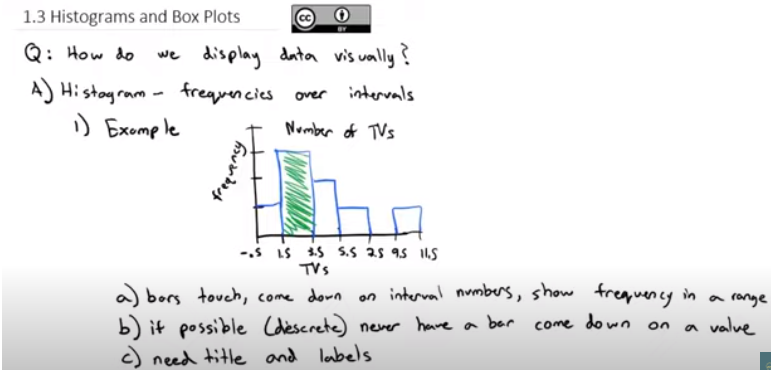 1.3 Histograms and Box Plots
cc BY
Q: How do we display data visually?
A) Histogram - frequencies over intervals
1) Example
Number of TVs
frequency
-.5 1.5 3.5 5.5 7.5 9.5 11.5
TVs
a) bars touch, come down on interval numbers, show frequency in a range
b) if possible (discrete) never have a bar come down on a value
c) need title and labels